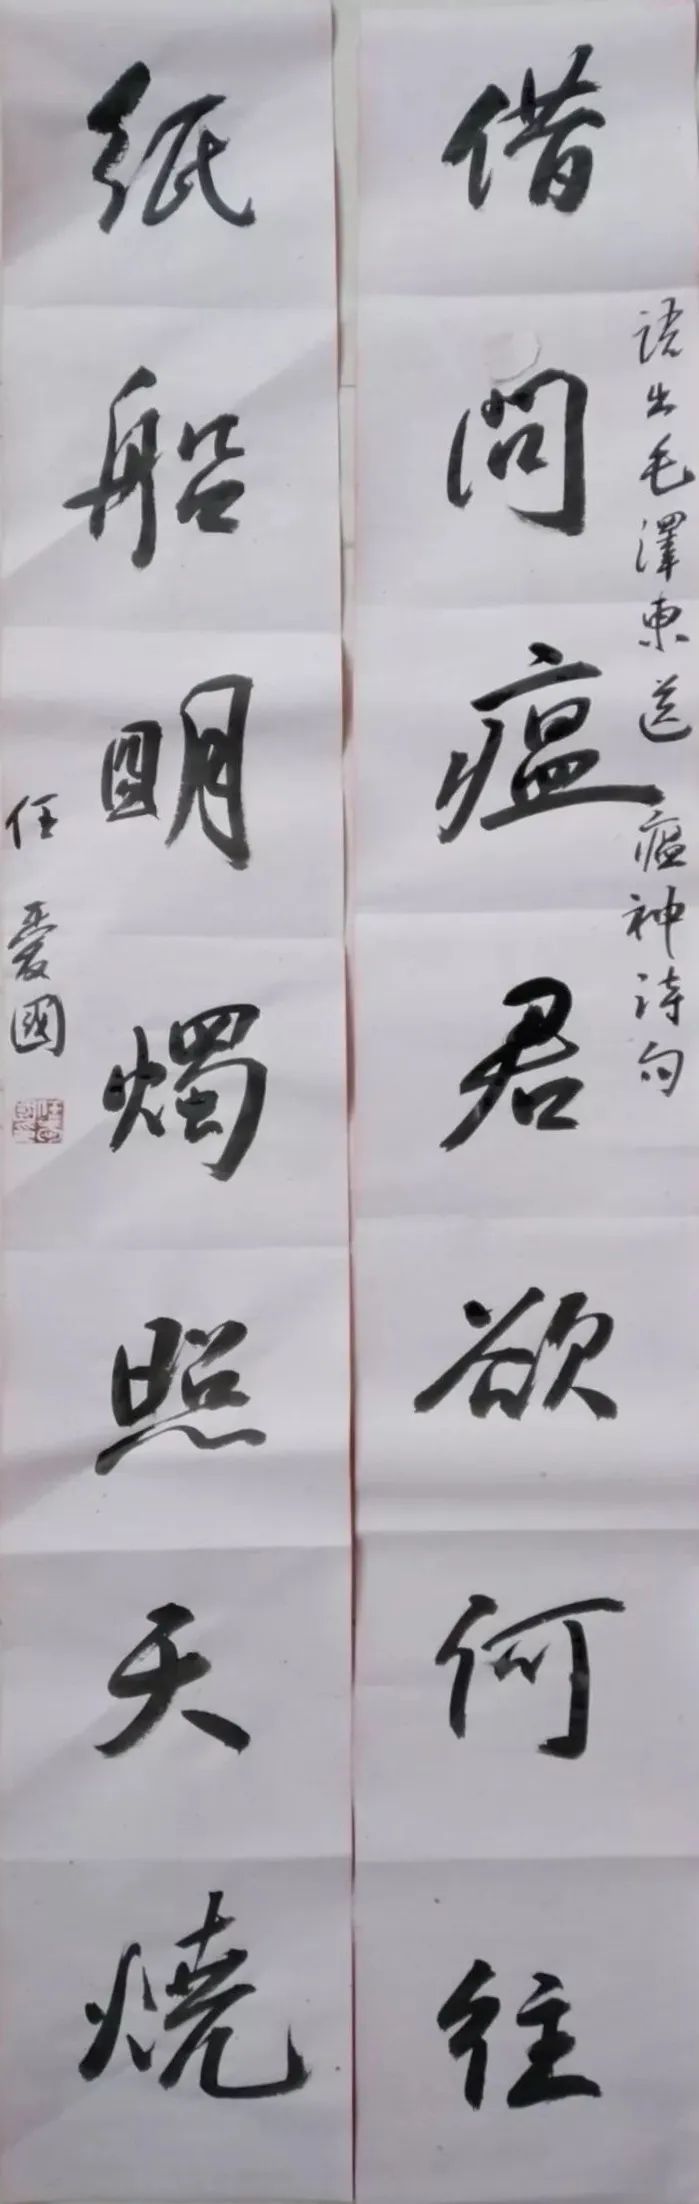 借問瘟君欲何往
語出毛澤東送瘟神诗句
紙船明燭照天燒
任愛國